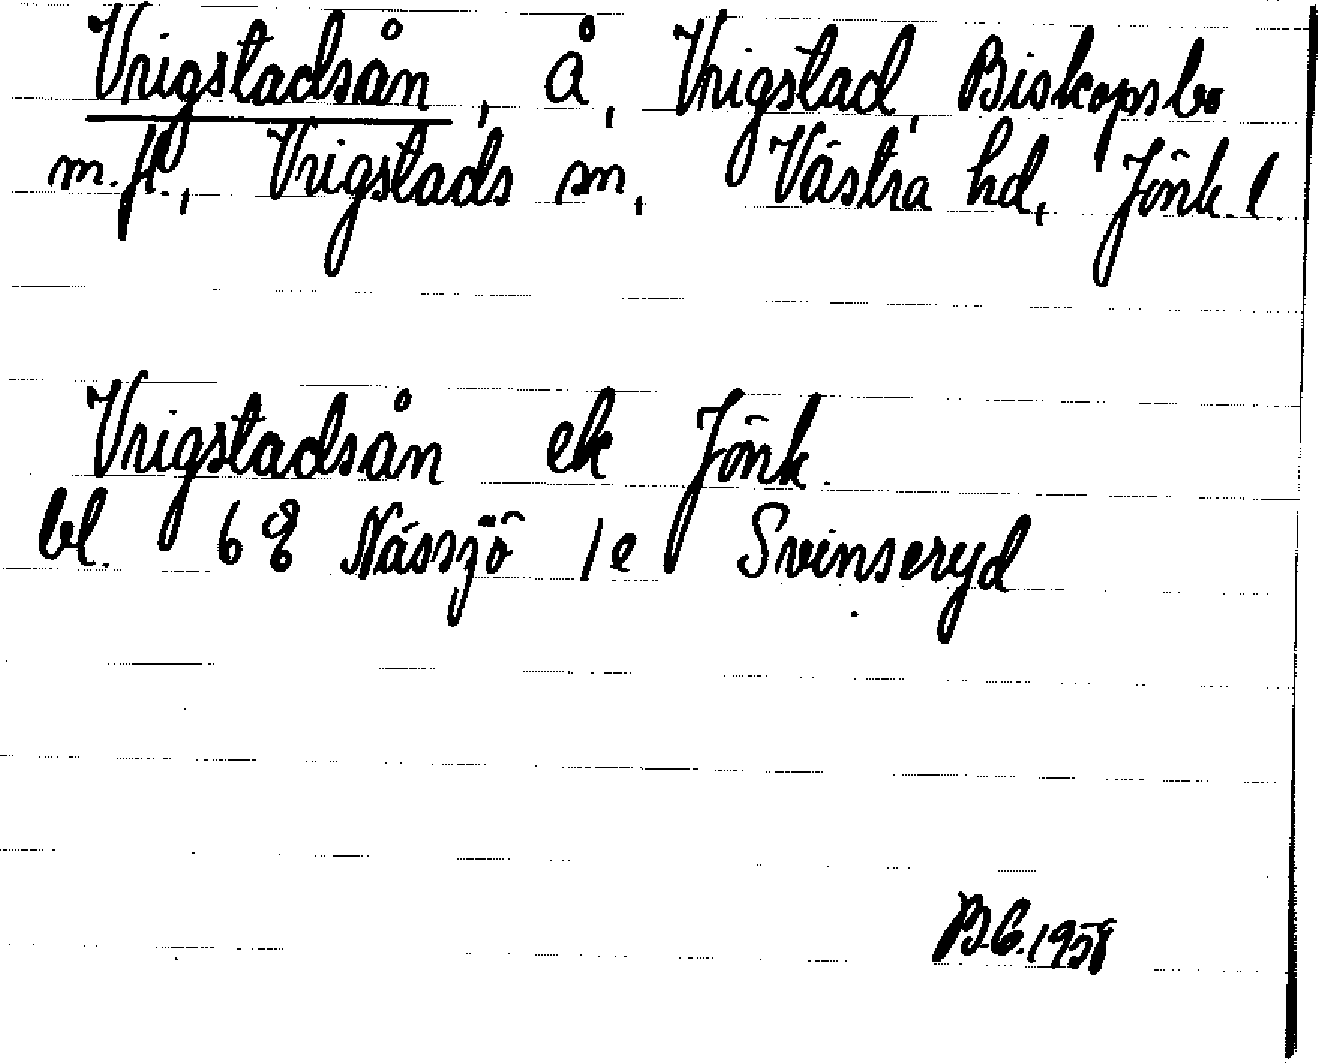 Vrigstadsån, å, Vrigstad, Biskopsbo
m.fl., Vrigstads sn, Västra hd, Jönk. l.
Vrigstadsån ek Jönk.
bl. 68 Nässjö 1e Svinseryd
B.G. 1958